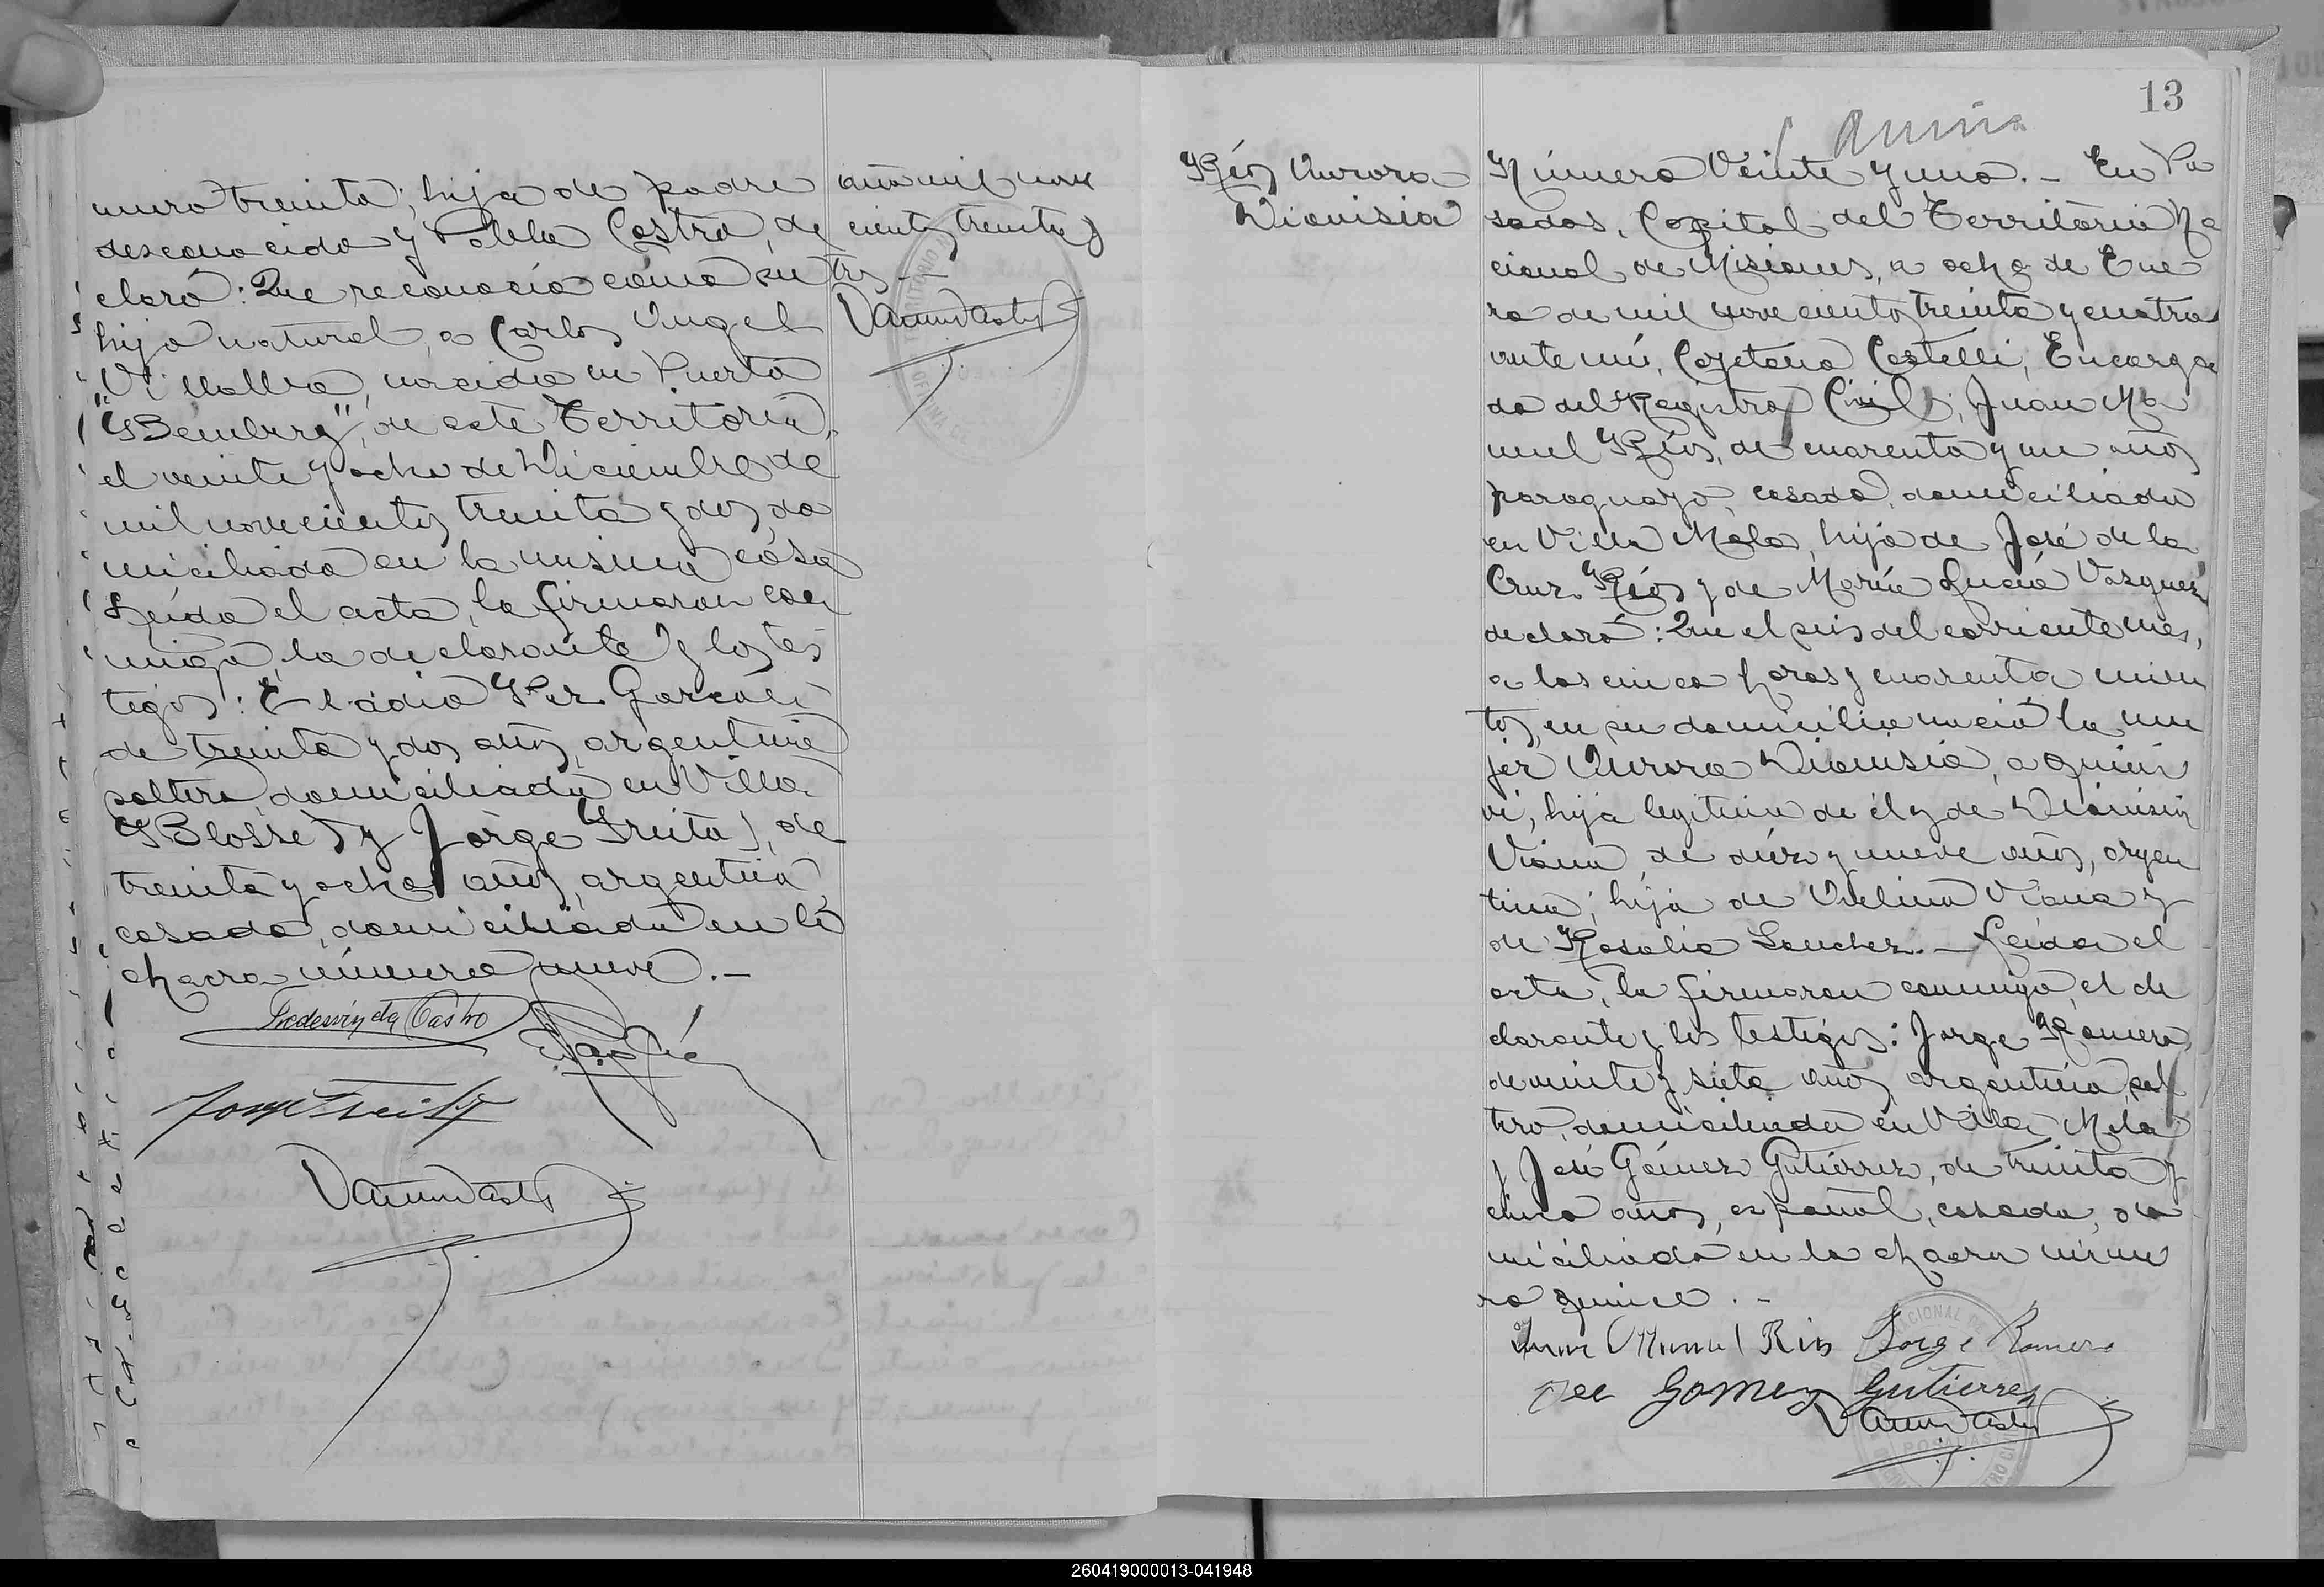 mero treinta; hija de padre
desconocido y Pabla Castro, de
claró: Que reconocía como su
hijo natural, a Carlos Angel
Villalba, nacido en Puerto
"Bemberg", de este Territorio,
el veinte y ocho de Diciembre de
mil novecientos treinta y dos, do
miciliado en la misma casa
Leída el acta, la firmaron con
migo, la declarante y los tes
tigos: Eladio
de treinta y dos años, argentino
soltero, domiciliado en Villa
Blosset y Jorge Freita, de
treinta y ocho años, argentino,
casado, domiciliado en la
chacra número nueve.-
Fredesvinda Castro
Jorge Freita
año mil nove
cientos treinta y
tres.-
13
Ríos Aurora
Dionisia
Número Veinte y uno.- En Po
sadas, Capital del Territorio Na
cional de Misiones, a ocho de Ene
ro de mil novecientos treinta y cuatro
ante mí, Cayetano Castelli, Encarga
do del Registro Civil; Juan Ma
nuel Ríos, de cuarenta y un años
paraguayo, casado, domiciliado
en Villa Mola, hijo de José de la
Cruz Ríos y de María Lucía Vasquez
declaró: Que el seis del corriente mes,
a las cinco horas y cuarenta minu
tos, en su domicilio nació la mu
jer Aurora Dionisia, a quien
ví, hija legítima de él y de Dionisia
Viana, de diez y nueve años, argen
tina; hija de Viana y
de Rosalia Sanchez.- Leída el
acta, la firmaron conmigo, el de
clarante y los testigos: Jorge Romero,
de veinte y siete años, argentino, sol
tero, domiciliado en Villa Mola
y José Gómez Gutiérrez, de treinta y
cinco años, español, casado, do
miciliado en la chacra núme
ro quince.-
Juan Manuel Rios Jorge Romero
Gomez Gutierrez
POSADAS
260419000013-041948